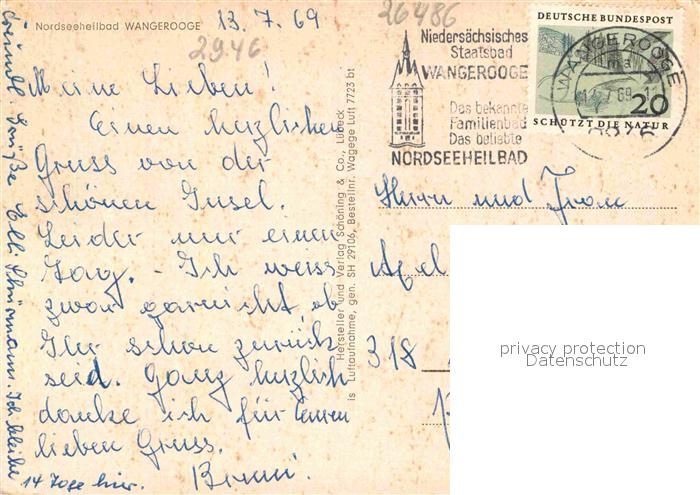 Nordseeheilbad WANGEROOGE
13.7.69
2946
26486
Meine Lieben!
Einen herzlichen
Gruss von der
schönen Insel.
Leider nur einen
Tag. - Ich weiss
zwar garnicht, ob
Ihr schon zurück
seid. Ganz herzlich
danke ich für Euren
lieben Gruss.
Freundl. Grüße Elli
Ich bleibe
14 Tage hier.
Hersteller und Verlag Schöning & Co., Lübeck
is Luftaufnahme, gen. SH 29106, Bestellnr. Wagege Luft 7723 bt
Niedersächsisches
Staatsbad
WANGEROOGE
Das bekannte
Familienbad
Das beliebte
NORDSEEHEILBAD
DEUTSCHE BUNDESPOST
20
SCHÜTZT DIE NATUR
WANGEROOGE
Herrn und Frau
318
privacy protection
Datenschutz